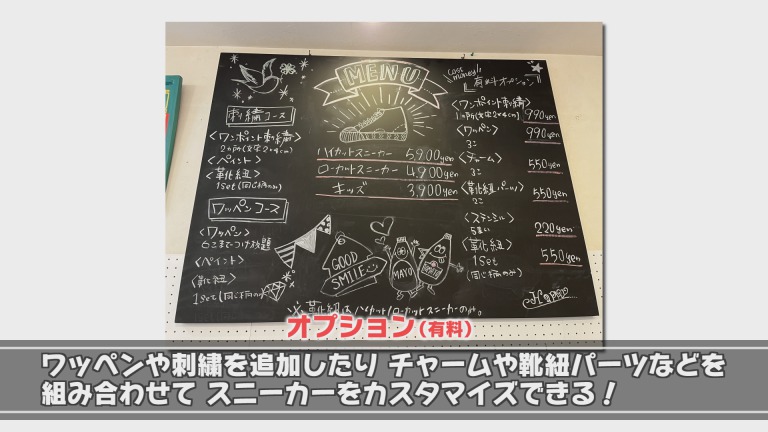 MENU
ハイカットスニーカー 5,900yen
ローカットスニーカー 4,900yen
キッズ 3,900yen
刺繍コース
<ワンポイント刺繍>
<ペイント>
<靴紐>
1set(同じ柄のみ)
ワッペンコース
<ワッペン>
6こまでつけ放題
<ペイント>
<靴紐>
1set(同じ柄のみ)
cost money!
有料オプション
<ワンポイント刺繍> 990yen
<ワッペン> 990yen
3こ
<チャーム> 550yen
3こ
<靴紐パーツ> 550yen
2こ
<ステンシル> 220yen
<靴紐> 550yen
1set
(同じ柄のみ)
GOOD
SMILE
MAYO
※靴紐はハイカット/ローカットスニーカーのみ。
オプション(有料)
ワッペンや刺繍を追加したり チャームや靴紐パーツなどを
組み合わせて スニーカーをカスタマイズできる!